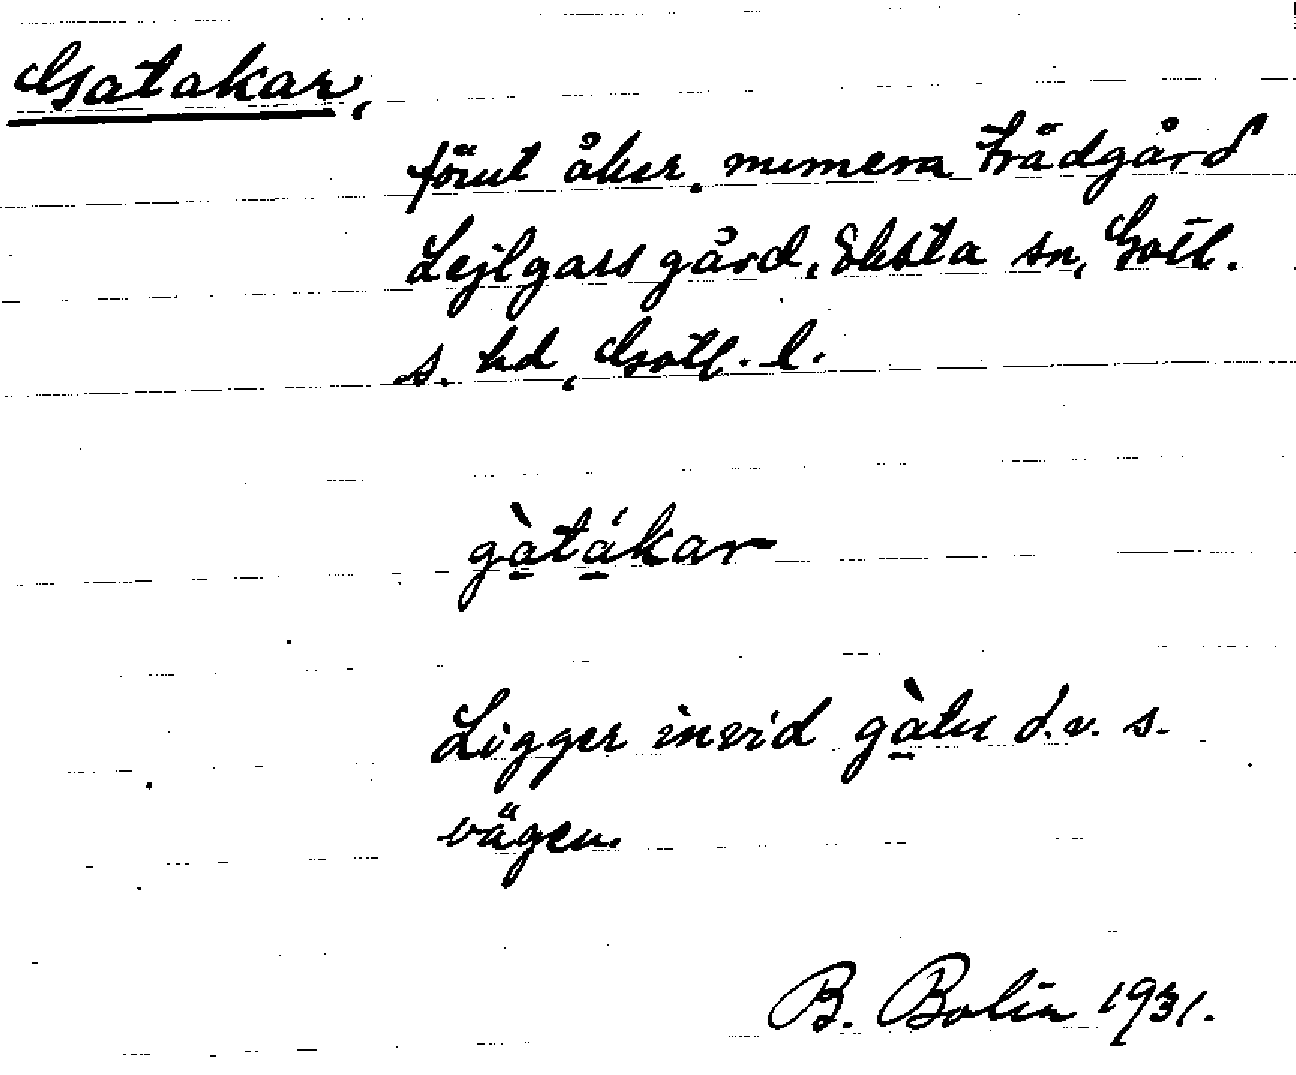 Gatakar,
förut åker, numera trädgård
Lejlgars gård, Eksta sn, Gotl.
s. hd, Gotl. l.
gàtákar
Ligger invid gàtu d.v.s.
vägen.
B. Bolin 1931.